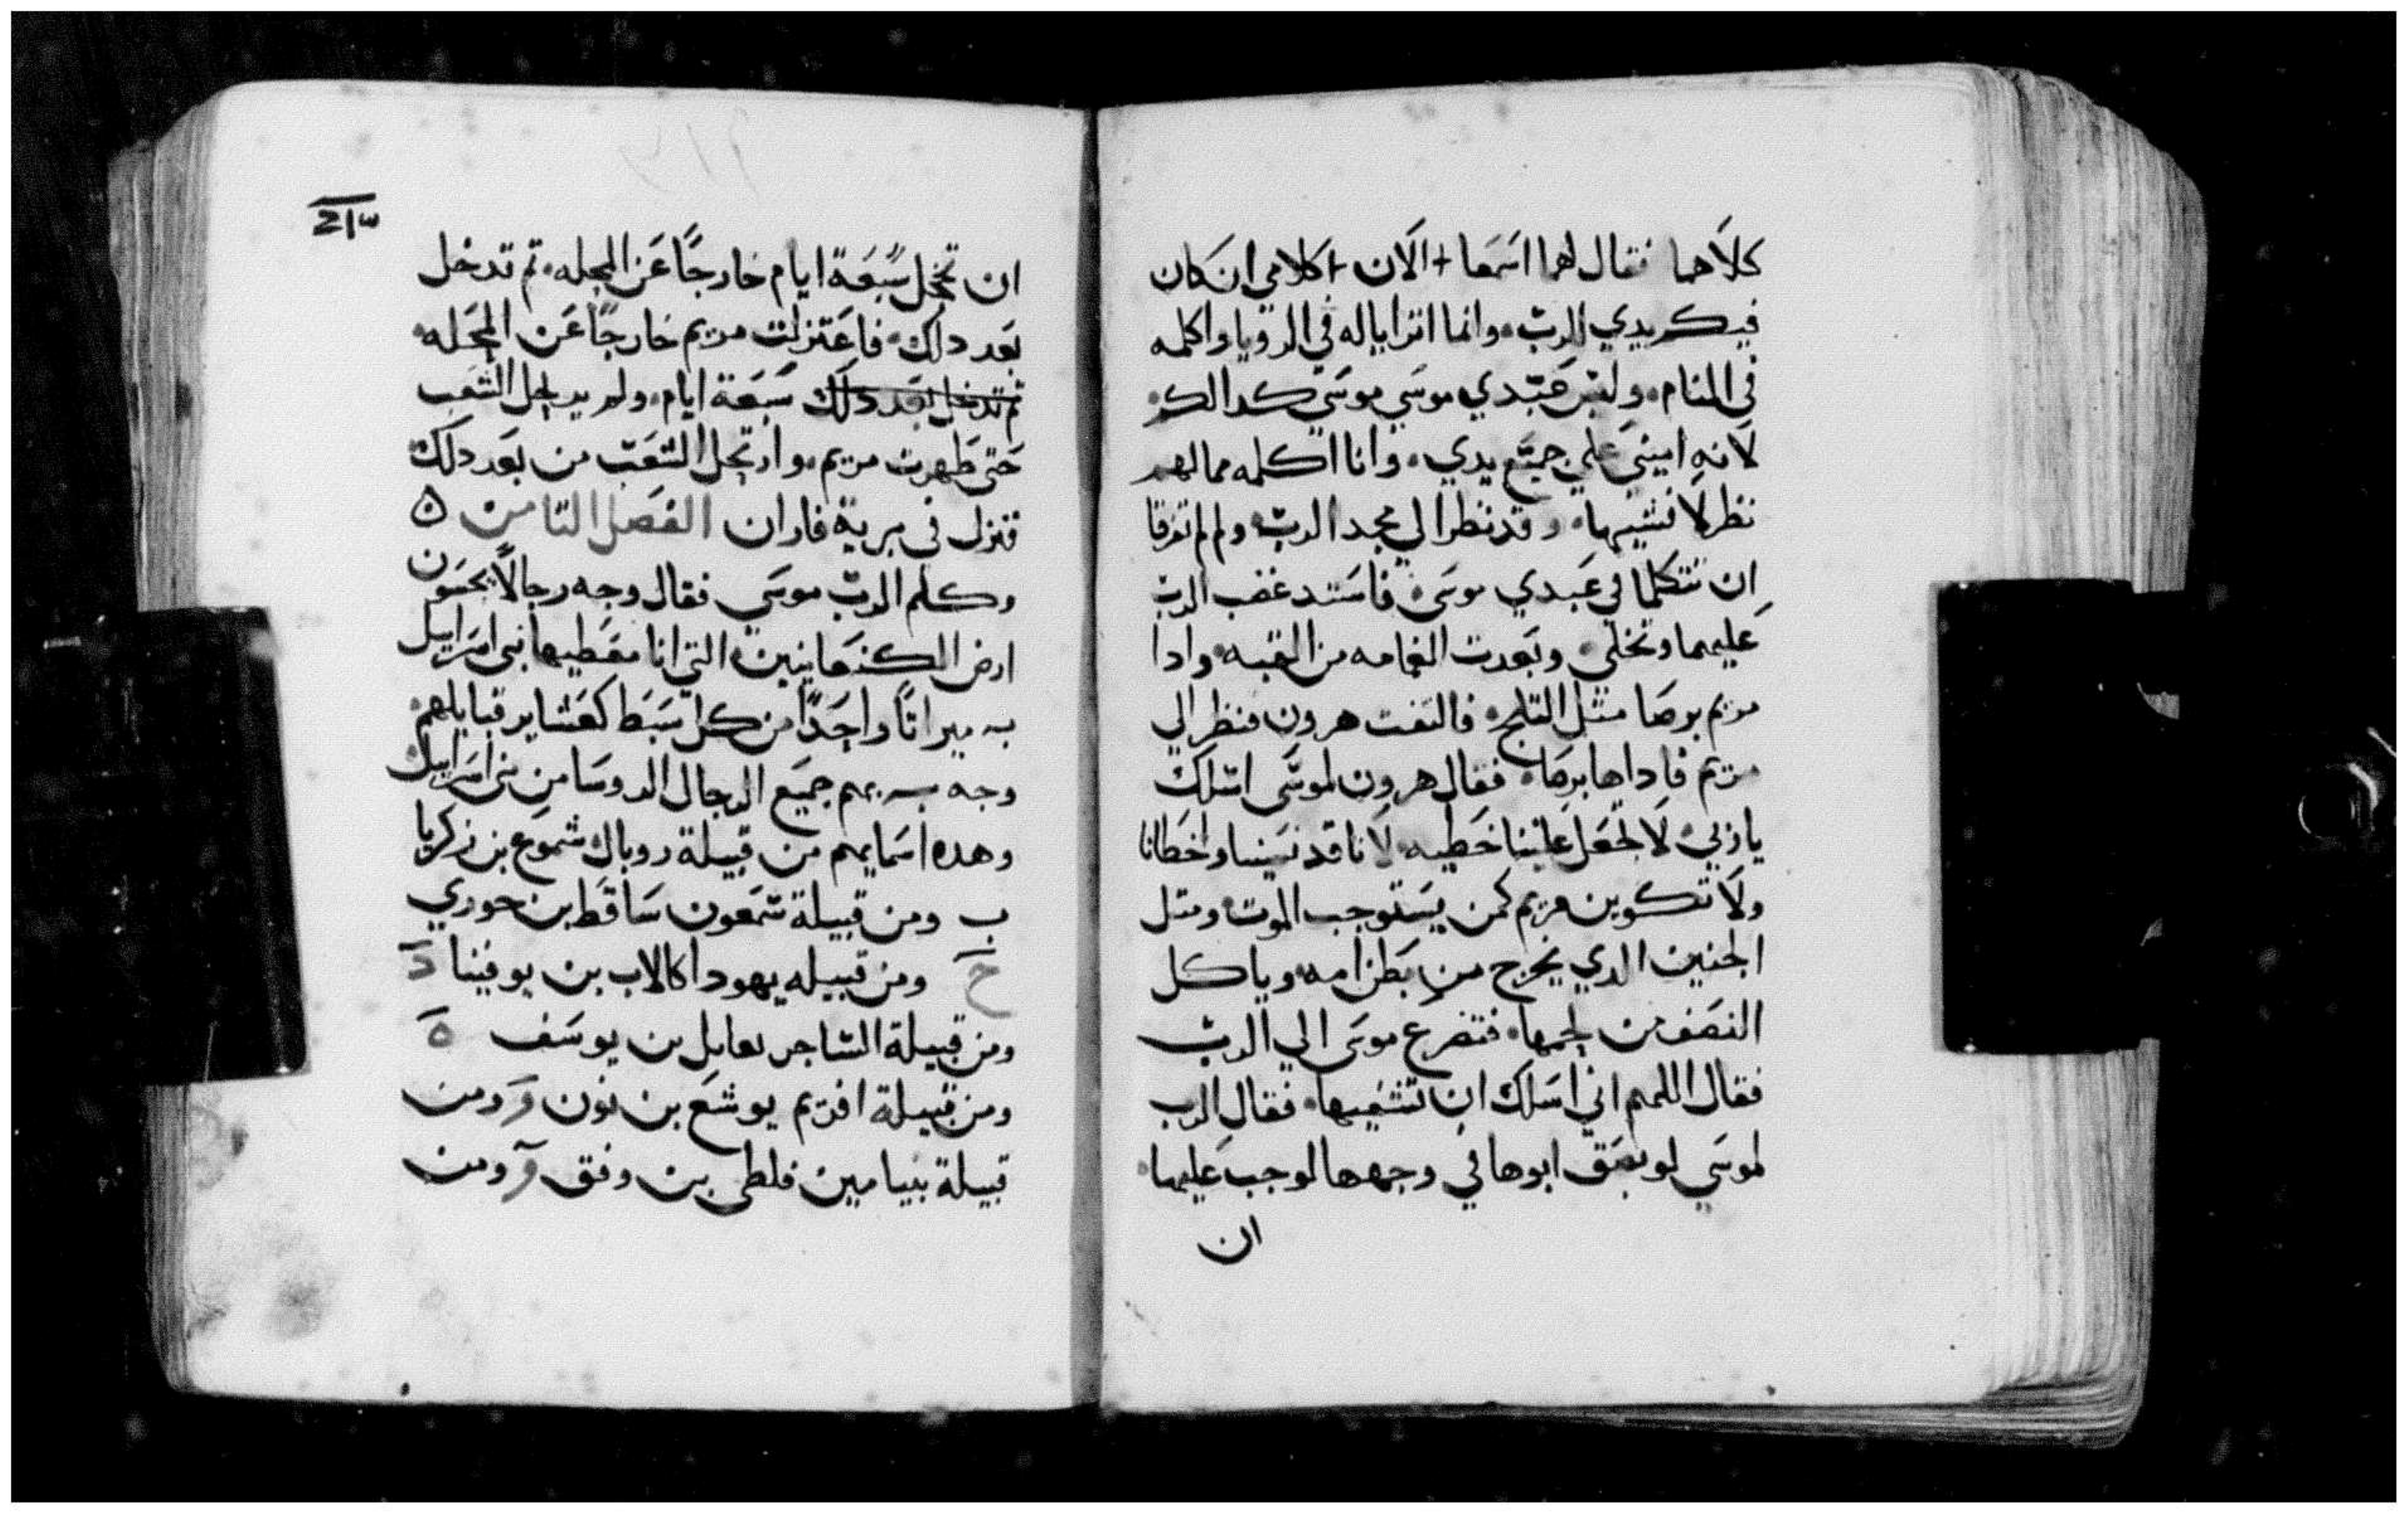 كلاهما فقال لهما اسمعا + الان + كلامي ان كان
فيكم يدي الرب. وانما اترايا له في الرويا واكلمه
في المنام. وليس عبدي موسي موسي كدالك.
لانه اميني علي جميع يدي. وانا اكلمه مما لهم
نظر لا نشيها. وقد نظر الي مجد الرب. ولم لم تفرقا
ان تتكلما في عبدي موسي. فاستد غضب الرب
عليهما وتخلي. وبعدت الغمامه من القبه. وادا
مريم برصا متل التلج. فالتفت هرون فنظر الي
مريم فاداها برصا. فقال هرون لموسي اسلك
يا ربي. لا تجعل علينا خطيه. لانا قد نسينا واخطانا
ولا تكوين مريم كمن يستوجب الموت. ومتل
الجنين الدي يخرج من بطن امه وياكل
النصف من لحمها. فتضرع موسي الي الرب
فقال اللهم اني اسلك ان تشفيها. فقال الرب
لموسي لو بصق ابوها في وجهها لوجب عليها.
ان
ان تخجل سبعة ايام خارجا عن المحله. تم تدخل
بعد دلك. فاعتزلت مريم خارجا عن المحله.
ثم تدخل بعد دلك سبعة ايام. ولم يرحل الشعب
حتي طهرت مريم. وارتحل الشعب من بعد دلك
فنزل في برية فاران الفصل التامن ۵
وكلم الرب موسي فقال وجه رجالا يحسون
ارض الكنعانيين. التي انا معطيها بني اسراييل
به ميراثا واحدا من كل سبط كعشاير قبايلهم.
وجه بهم جميع الرجال الروسا من بني اسراييل.
وهده اسمايهم من قبيلة روبال شموع بن زكريا
ب ومن قبيلة شمعون ساقط بن حوري
ج ومن قبيله يهودا كالاب بن يوفينا د
ومن قبيلة الساجر بن يوسف ه
ومن قبيلة افريم يوشع بن نون و ومن
قبيلة بنيامين فلطي بن وفق و ومن